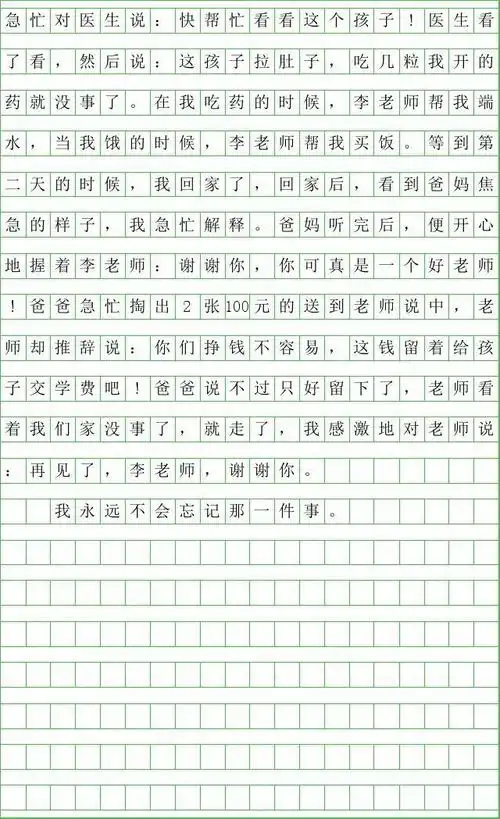 急忙对医生说：快帮忙看看这个孩子！医生看
了看，然后说：这孩子拉肚子，吃几粒我开的
药就没事了。在我吃药的时候，李老师帮我端
水，当我饿的时候，李老师帮我买饭。等到第
二天的时候，我回家了，回家后，看到爸妈焦
急的样子，我急忙解释。爸妈听完后，便开心
地握着李老师：谢谢你，你可真是一个好老师
！爸爸急忙掏出2张100元的送到老师说中，老
师却推辞说：你们挣钱不容易，这钱留着给孩
子交学费吧！爸爸说不过只好留下了，老师看
着我们家没事了，就走了，我感激地对老师说
：再见了，李老师，谢谢你。
我永远不会忘记那一件事。